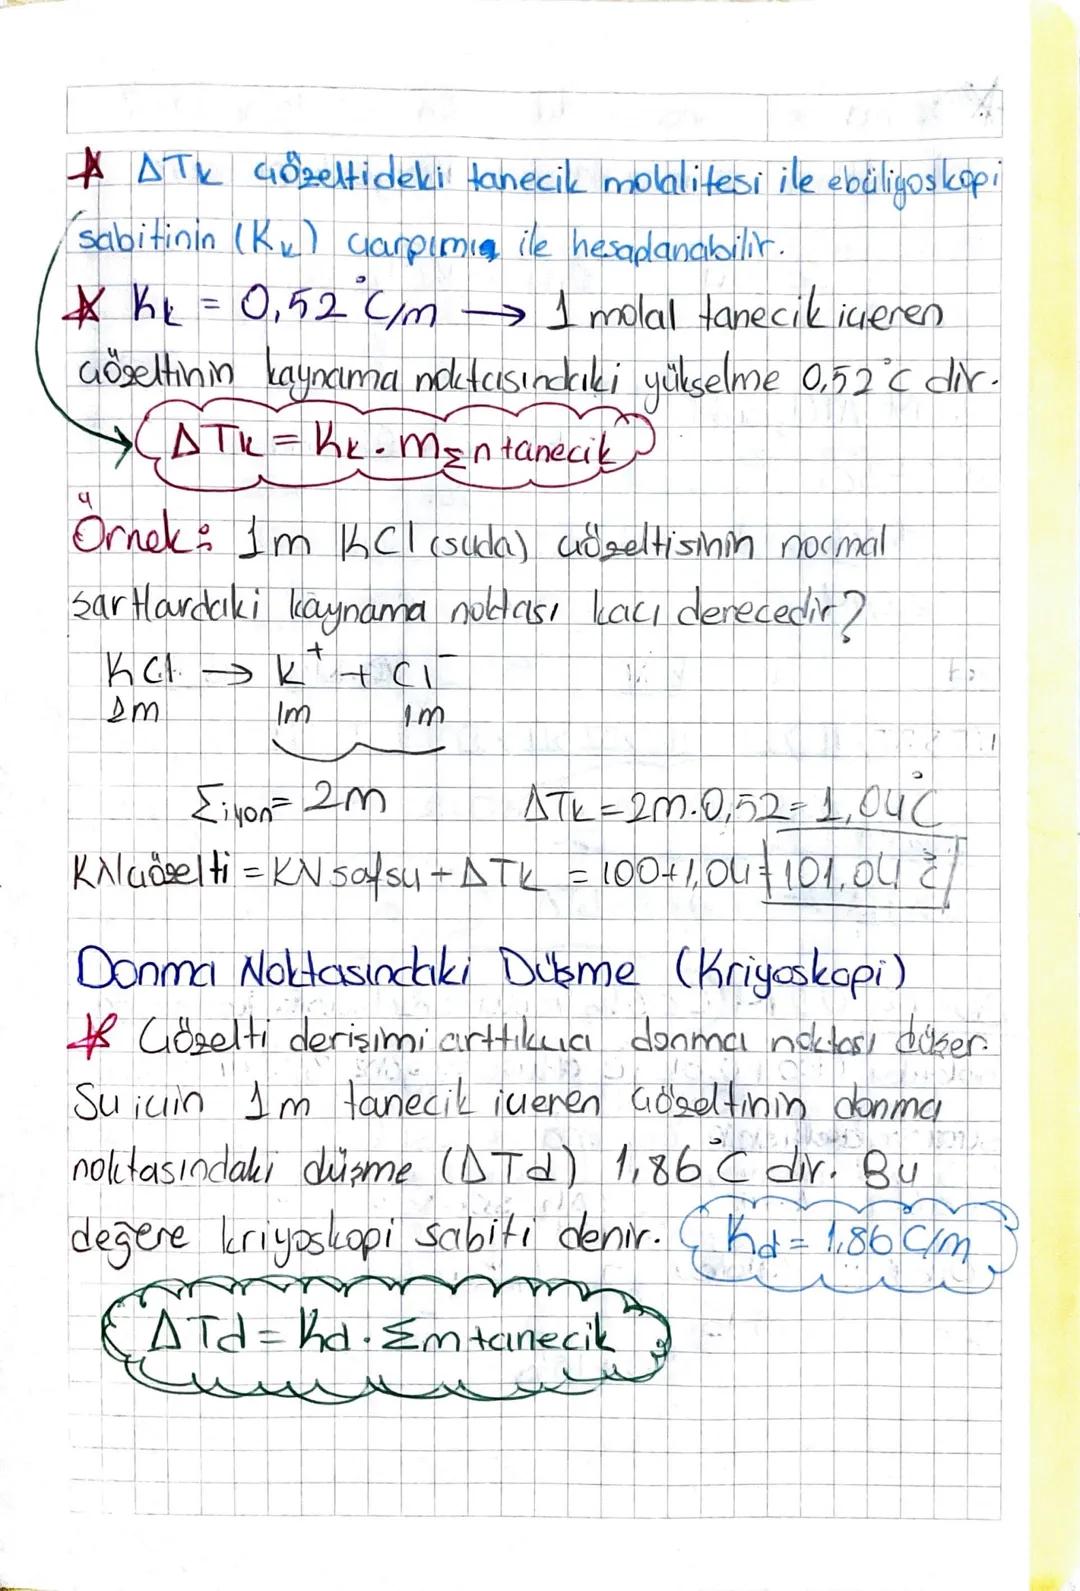 * ΔTk çözeltideki tanecik molalitesi ile ebüliyoskopi
sabitinin (Kk) çarpımıa ile hesaplanabilir.
* Kk = 0,52 °C/m → 1 molal tanecik içeren
çözeltinin kaynama noktasındaki yükselme 0,52°C dir.
ΔTk = Kk . mΣn tanecik
Örnek: 1m KCl (suda) çözeltisinin normal
şartlardaki kaynama noktası kaç derecedir?
KCl → K⁺ + Cl⁻
1m 1m 1m
Σiyon = 2m ΔTk = 2m.0,52 = 1,04°C
KNçözelti = KNsafsu + ΔTk = 100+1,04 = 101,04 °C
Donma Noktasındaki Düşme (Kriyoskopi)
* Çözelti derişimi arttıkça donma noktası düşer.
Su için 1m tanecik içeren çözeltinin donma
noktasındaki düşme (ΔTd) 1,86°C dir. Bu
değere kriyoskopi sabiti denir. Kd = 1,86 C/m
ΔTd = Kd . Σm tanecik